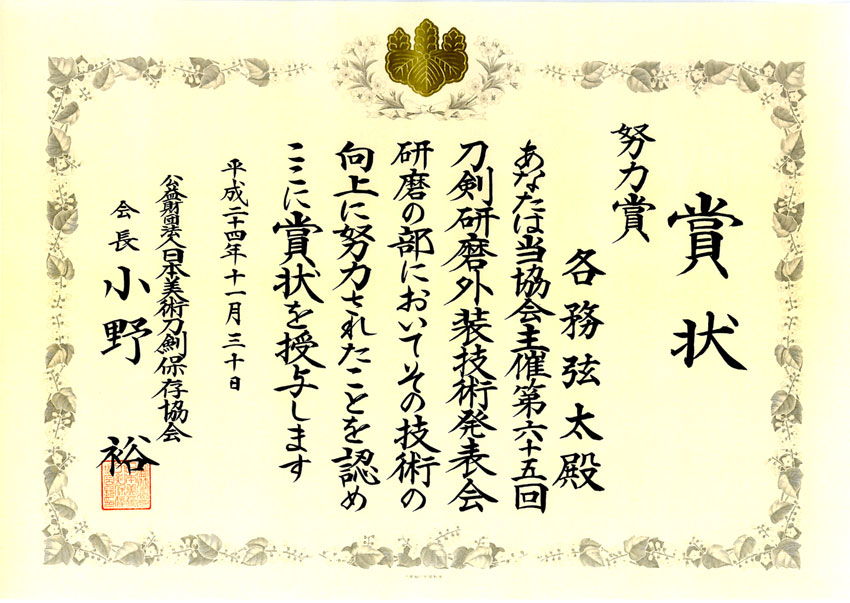 賞状
努力賞
各務弦太殿
あなたは当協会主催第六十五回
刀剣研磨外装技術発表会
研磨の部においてその技術の
向上に努力されたことを認め
ここに賞状を授与します
平成二十四年十一月三十日
公益財団法人日本美術刀剣保存協会
会長 小野裕